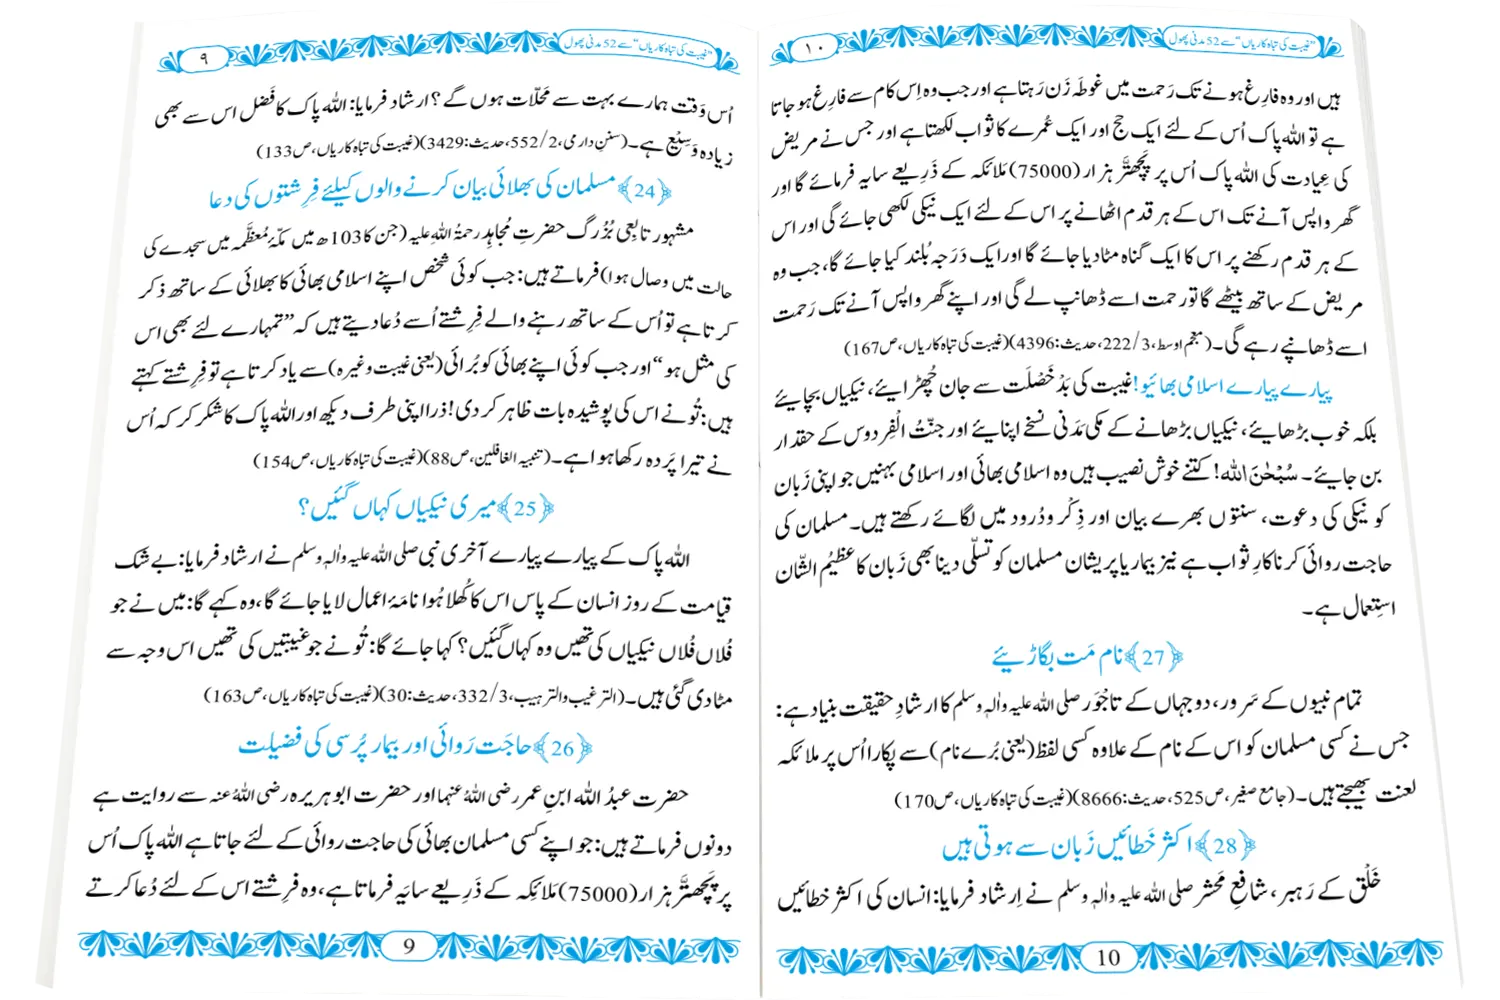 ٩
”غیبت کی تباہ کاریاں“ سے 52 مدنی پھول
اُس وَقت ہمارے بہت سے محَلّات ہوں گے ؟ ارشاد فرمایا: اللہ پاک کا فَضل اس سے بھی
زیادہ وَسِیْع ہے۔ (سنن دارمی، 552/2، حدیث: 3429)(غیبت کی تباہ کاریاں، ص133)
﴿24﴾ مسلمان کی بھلائی بیان کرنے والوں کیلئے فِرِشتوں کی دعا
مشہور تابِعی بُزُرگ حضرتِ مُجاہِد رحمۃُ اللہِ علیہ (جن کا 103ھ میں مکّۂ مُعَظّمہ میں سجدے کی
حالت میں وصال ہوا) فرماتے ہیں: جب کوئی شخص اپنے اسلامی بھائی کا بھلائی کے ساتھ ذکر
کرتا ہے تو اُس کے ساتھ رہنے والے فِرِشتے اُسے دُعا دیتے ہیں کہ ”تمہارے لئے بھی اس
کی مثل ہو“ اور جب کوئی اپنے بھائی کو بُرائی (یعنی غیبت وغیرہ) سے یاد کرتا ہے تو فِرِشتے کہتے
ہیں: تُونے اس کی پوشیدہ بات ظاہر کر دی! ذرا اپنی طرف دیکھ اور اللہ پاک کا شکر کر کہ اُس
نے تیرا پَردہ رکھا ہوا ہے۔ (تنبیہ الغافلین، ص88)(غیبت کی تباہ کاریاں، ص154)
﴿25﴾ میری نیکیاں کہاں گئیں؟
اللہ پاک کے پیارے پیارے آخری نبی صلی اللہ علیہ والہٖ وسلم نے ارشاد فرمایا: بے شک
قیامت کے روز انسان کے پاس اس کا کُھلا ہُوا نامۂ اعمال لایا جائے گا، وہ کہے گا: میں نے جو
فُلاں فُلاں نیکیاں کی تھیں وہ کہاں گئیں؟ کہا جائے گا: تُونے جو غیبتیں کی تھیں اس وجہ سے
مٹا دی گئی ہیں۔ (الترغیب والترہیب، 332/3، حدیث: 30)(غیبت کی تباہ کاریاں، ص163)
﴿26﴾ حاجَت رَوائی اور بیمار پُرسی کی فضیلت
حضرت عبدُ اللہ ابنِ عمر رضی اللہُ عنہما اور حضرت ابو ہریرہ رضی اللہُ عنہ سے روایت ہے
دونوں فرماتے ہیں: جو اپنے کسی مسلمان بھائی کی حاجت روائی کے لئے جاتا ہے اللہ پاک اُس
پر پَچھتَّر ہزار (75000) مَلائِکہ کے ذَرِیعے سایَہ فرماتا ہے، وہ فرشتے اس کے لئے دُعا کرتے
9
١٠
”غیبت کی تباہ کاریاں“ سے 52 مدنی پھول
ہیں اور وہ فارِغ ہونے تک رَحمت میں غوطہ زَن رَہتا ہے اور جب وہ اِس کام سے فارِغ ہو جاتا
ہے تو اللہ پاک اُس کے لئے ایک حج اور ایک عُمرے کا ثواب لکھتا ہے اور جس نے مریض
کی عِیادت کی اللہ پاک اُس پر پَچھتَّر ہزار (75000) مَلائکہ کے ذَرِیعے سایہ فرمائے گا اور
گھر واپس آنے تک اس کے ہر قدم اٹھانے پر اس کے لئے ایک نیکی لکھی جائے گی اور اس
کے ہر قدم رکھنے پر اس کا ایک گناہ مٹا دیا جائے گا اور ایک دَرَجہ بُلند کیا جائے گا، جب وہ
مریض کے ساتھ بیٹھے گا تو رحمت اسے ڈھانپ لے گی اور اپنے گھر واپس آنے تک رَحمت
اسے ڈھانپے رہے گی۔ (معجم اوسط، 222/3، حدیث: 4396)(غیبت کی تباہ کاریاں، ص167)
پیارے پیارے اسلامی بھائیو! غیبت کی بَدْ خَصْلَت سے جان چُھڑائیے، نیکیاں بچایئے
بلکہ خوب بڑھایئے، نیکیاں بڑھانے کے مکی مَدَنی نسخے اپنایئے اور جنّتُ الْفِردوس کے حقدار
بن جایئے۔ سُبْحٰنَ اللہ! کتنے خوش نصیب ہیں وہ اسلامی بھائی اور اسلامی بہنیں جو اپنی زَبان
کو نیکی کی دعوت، سنتوں بھرے بیان اور ذِکْر و دُرود میں لگائے رکھتے ہیں۔ مسلمان کی
حاجت روائی کرنا کارِ ثواب ہے نیز بیمار یا پریشان مسلمان کو تسلّی دینا بھی زَبان کا عظیمُ الشّان
استِعمال ہے۔
﴿27﴾ نام مَت بگاڑیئے
تمام نبیوں کے سَرور، دو جہاں کے تاجْوَر صلی اللہ علیہ والہٖ وسلم کا ارشادِ حقیقت بنیاد ہے:
جس نے کسی مسلمان کو اس کے نام کے علاوہ کسی لفظ (یعنی بُرے نام) سے پکارا اُس پر ملائکہ
لعنت بھیجتے ہیں۔ (جامع صغیر، ص525، حدیث: 8666)(غیبت کی تباہ کاریاں، ص170)
﴿28﴾ اکثر خَطائیں زَبان سے ہوتی ہیں
خَلْق کے رَہبر، شافِعِ مَحشر صلی اللہ علیہ والہٖ وسلم نے اِرشاد فرمایا: انسان کی اکثر خطائیں
10